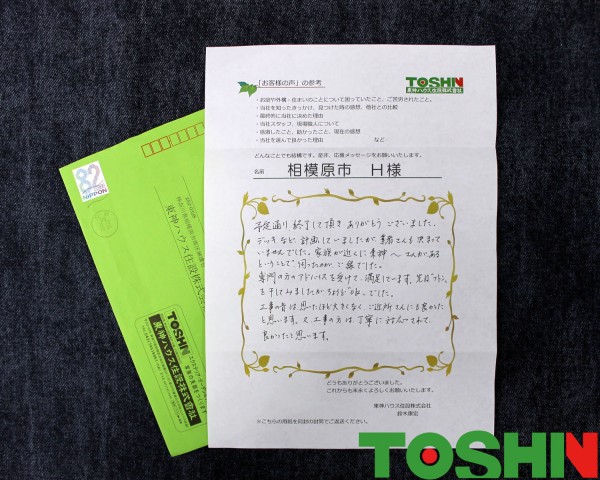 「お客様の声」の参考
TOSHIN
東神ハウス住設株式会社
・お庭や外構・住まいのことについて困っていたこと、ご苦労されたこと。
・当社を知ったきっかけ、見つけた時の感想、他社との比較
・最終的に当社に決めた理由
・当社スタッフ、現場職人について
・感激したこと、助かったこと、現在の感想
・当社を選んで良かった理由 など
どんなことでも結構です。是非、応援メッセージをお願いいたします。
名前 相模原市 H様
予定通り終了して頂きありがとうございました。
デッキなど計画していましたが業者さんも決まって
いませんでした。家族が近くに東神ハウスさんがある
ということで伺ったのがご縁でした。
専門の方のアドバイスを受けて、満足しています。先日フトン
を干してみましたがちょうどOKでした。
工事の音は思ったほど大きくなく、ご近所さんにも良かった
と思います。又、工事の方は丁寧に対応してくれて、
良かったと思います。
どうもありがとうございました。
これからも末永くよろしくお願いいたします。
東神ハウス住設株式会社
鈴木康宏
※こちらの用紙を同封の封筒でご返送ください。
82
NIPPON
東神ハウス住設株式会
TOSHIN
東神ハウス住設株式会社
TOSHIN